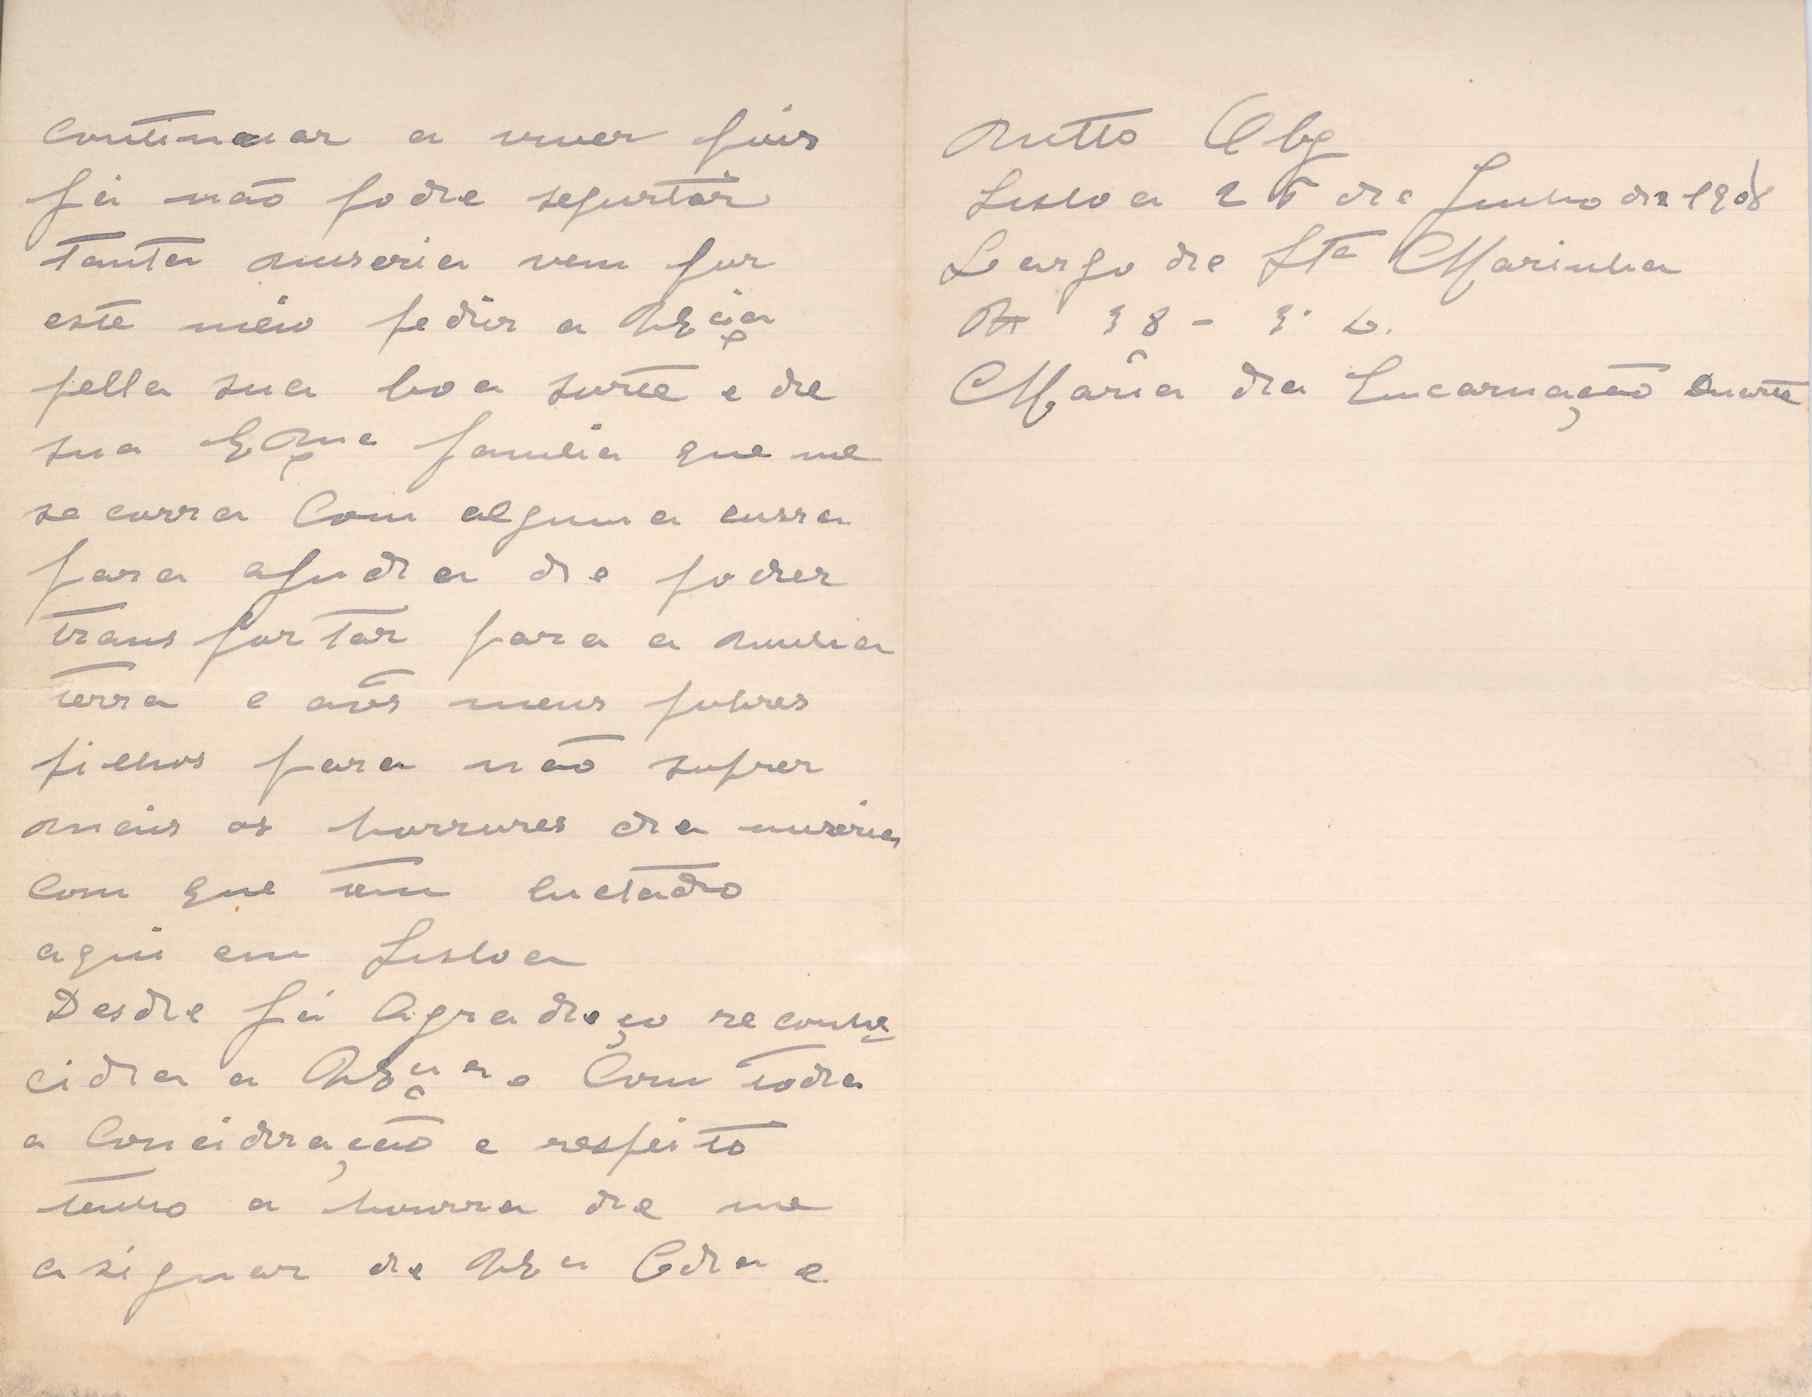 continuar a viver pois
já não pode sepurtar
tanta miseria vem por
este meio pedir a V Ecia
pella sua boa sorte e de
sua Exma familia que me
secorra Com alguma cussa
para ajuda de poder
transportar para a minha
terra e aos meus pobres
filhos para não sofrer
mais os horrores da miseria
Com que tem luctado
aqui em Lisboa
Desde já Agradeço reconhe
cida a V Ecia e Com toda
a Concideração e respeito
tenho a honrra de me
asignar de V Ea Cda e
Mtto Obg
Lisboa 25 de Junho de 1908
Largo de Sta Marinha
Nº 38 - 3º D.
Maria da Encarnação Duarte